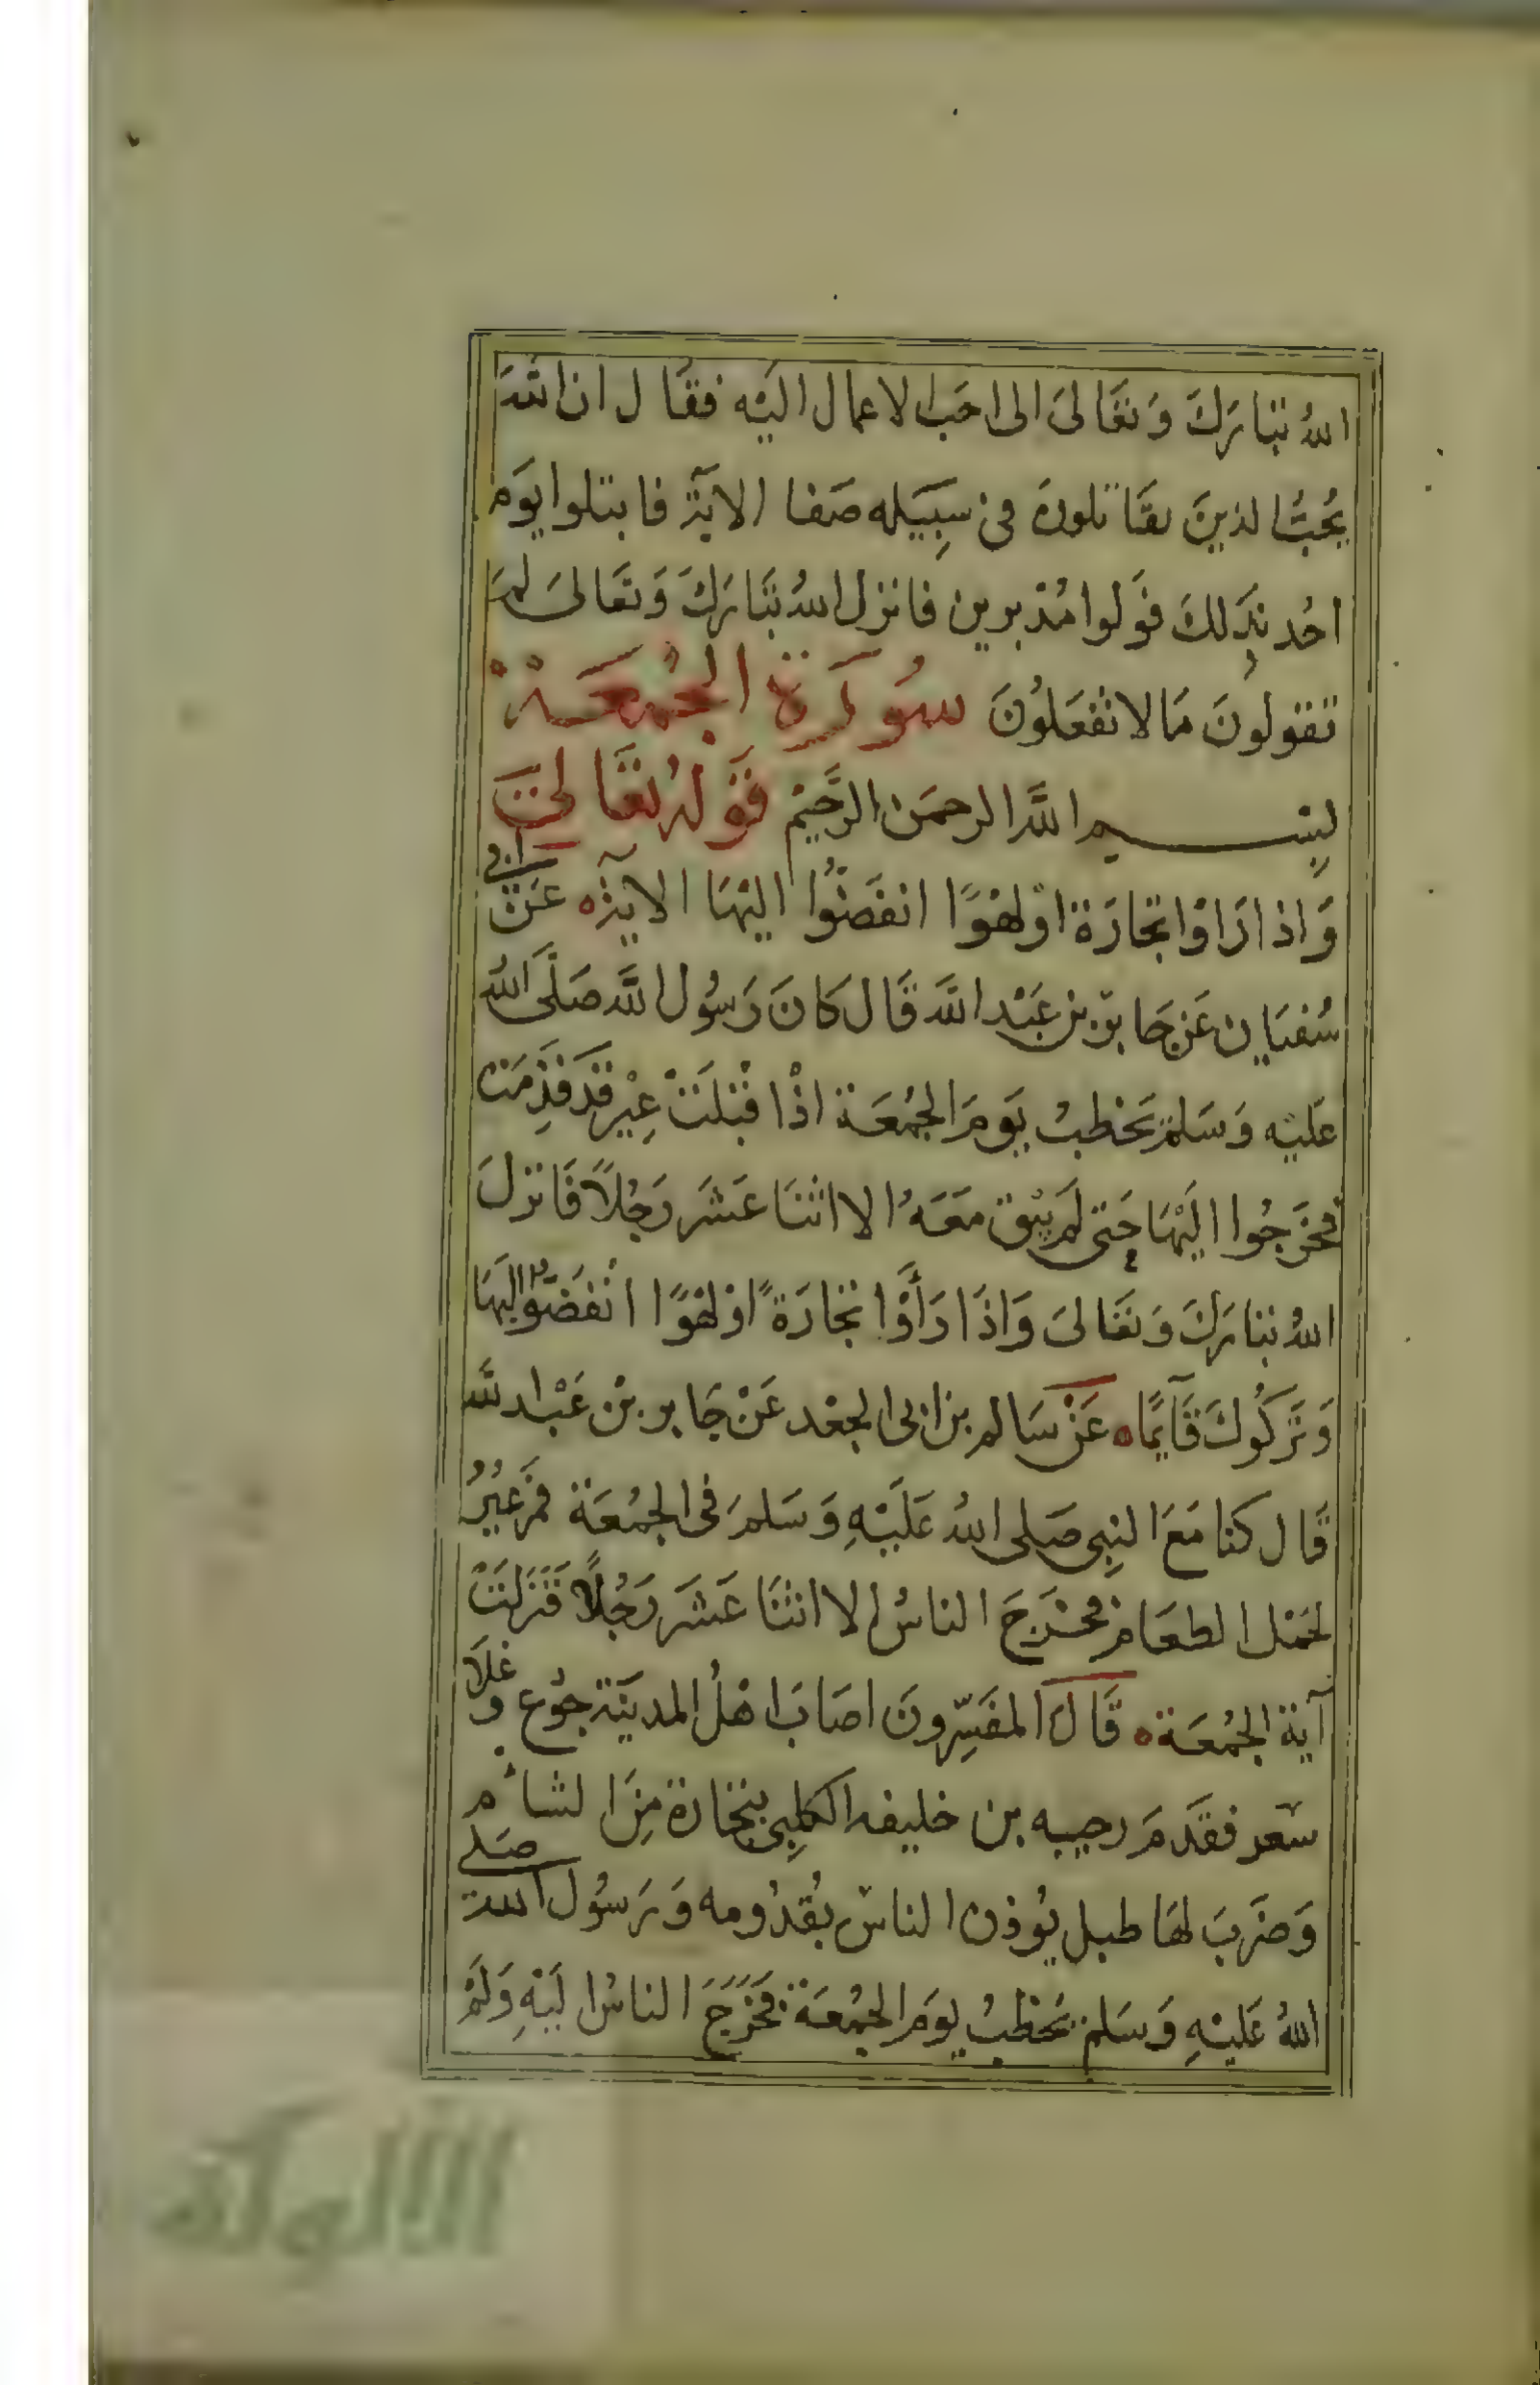 اللهُ تبَارَكَ وَتعَالىَ الى احَب الاعمال اليْه فقَال ان اللهَ
يُحبُّ الذينَ يقَاتلونَ فى سِبيَله صَفا الايَة فابتلوا يوَم
احُد بذَلكَ فوَلوا مُدبرين فانزل اللهُ تبَارَكَ وَتعَالىَ لمَ
تقولوُنَ مَا لا تفْعَلوُنَ سوُرَة الجُمعَة
بِسْم اللَّه الرحمَن الرَّحيْم قوَلهُ تعَالىَ
وَاذا رَاوْا تجَارَة اوْ لهْوًا انفَضُّوا اليْهَا الايَة ه عَنْ ابى
سُفيَان عَن جَابرْ بن عَبْد اللَّه قَال كَانَ رَسُول اللَّه صَلَّى اللهُ
عَليْه وَسَلمَ يَخطبُ يَومَ الجُمعَة اذْ اقبْلَتْ عِيْر قَد قَدِمَت
فخَرَجُوا اليَهْا حَتى لمَ يبْق مَعَهُ الا اثنَا عَشَر رَجُلاً فَانزلَ
اللهُ تبَارَكَ وَتعَالىَ وَاذَا رَأَوْا تجَارَةً اوْ لهْوًا انْفَضُّوا اليَهَا
وَترَكُوكَ قَآيمًا ه عَنْ سَالم بن ابى الجعْد عَنْ جَابر بْن عَبْد اللَّه
قَال كنا مَعَ النبِى صَلى اللهُ عَلَيْهِ وَسَلمَ فى الجُمُعَة فمَر عِيْرُ
لحَمْل الطعَام فخَرجَ الناسُ الا اثنَا عَشَر رَجُلاً فَنزَلتَْ
آية الجُمعَة ه قَالَ المفَسِّرونَ اصَابَ اهْلُ المديَنة جوُع وغلَا
سعْر فقَدمَ رحيبه بن خليفه الكلبِى بتجَارة مِنَ الشأم
وَضرَبَ لهَا طبل يُوذن الناسْ بقُدُومه وَرَسُول الله صَلى
اللهُ عَليْهِ وَسَلم يَخطبُ يوَم الجمُعَة فخَرَجَ الناسُ اليَهِْ وَلمَْ
الألوكة